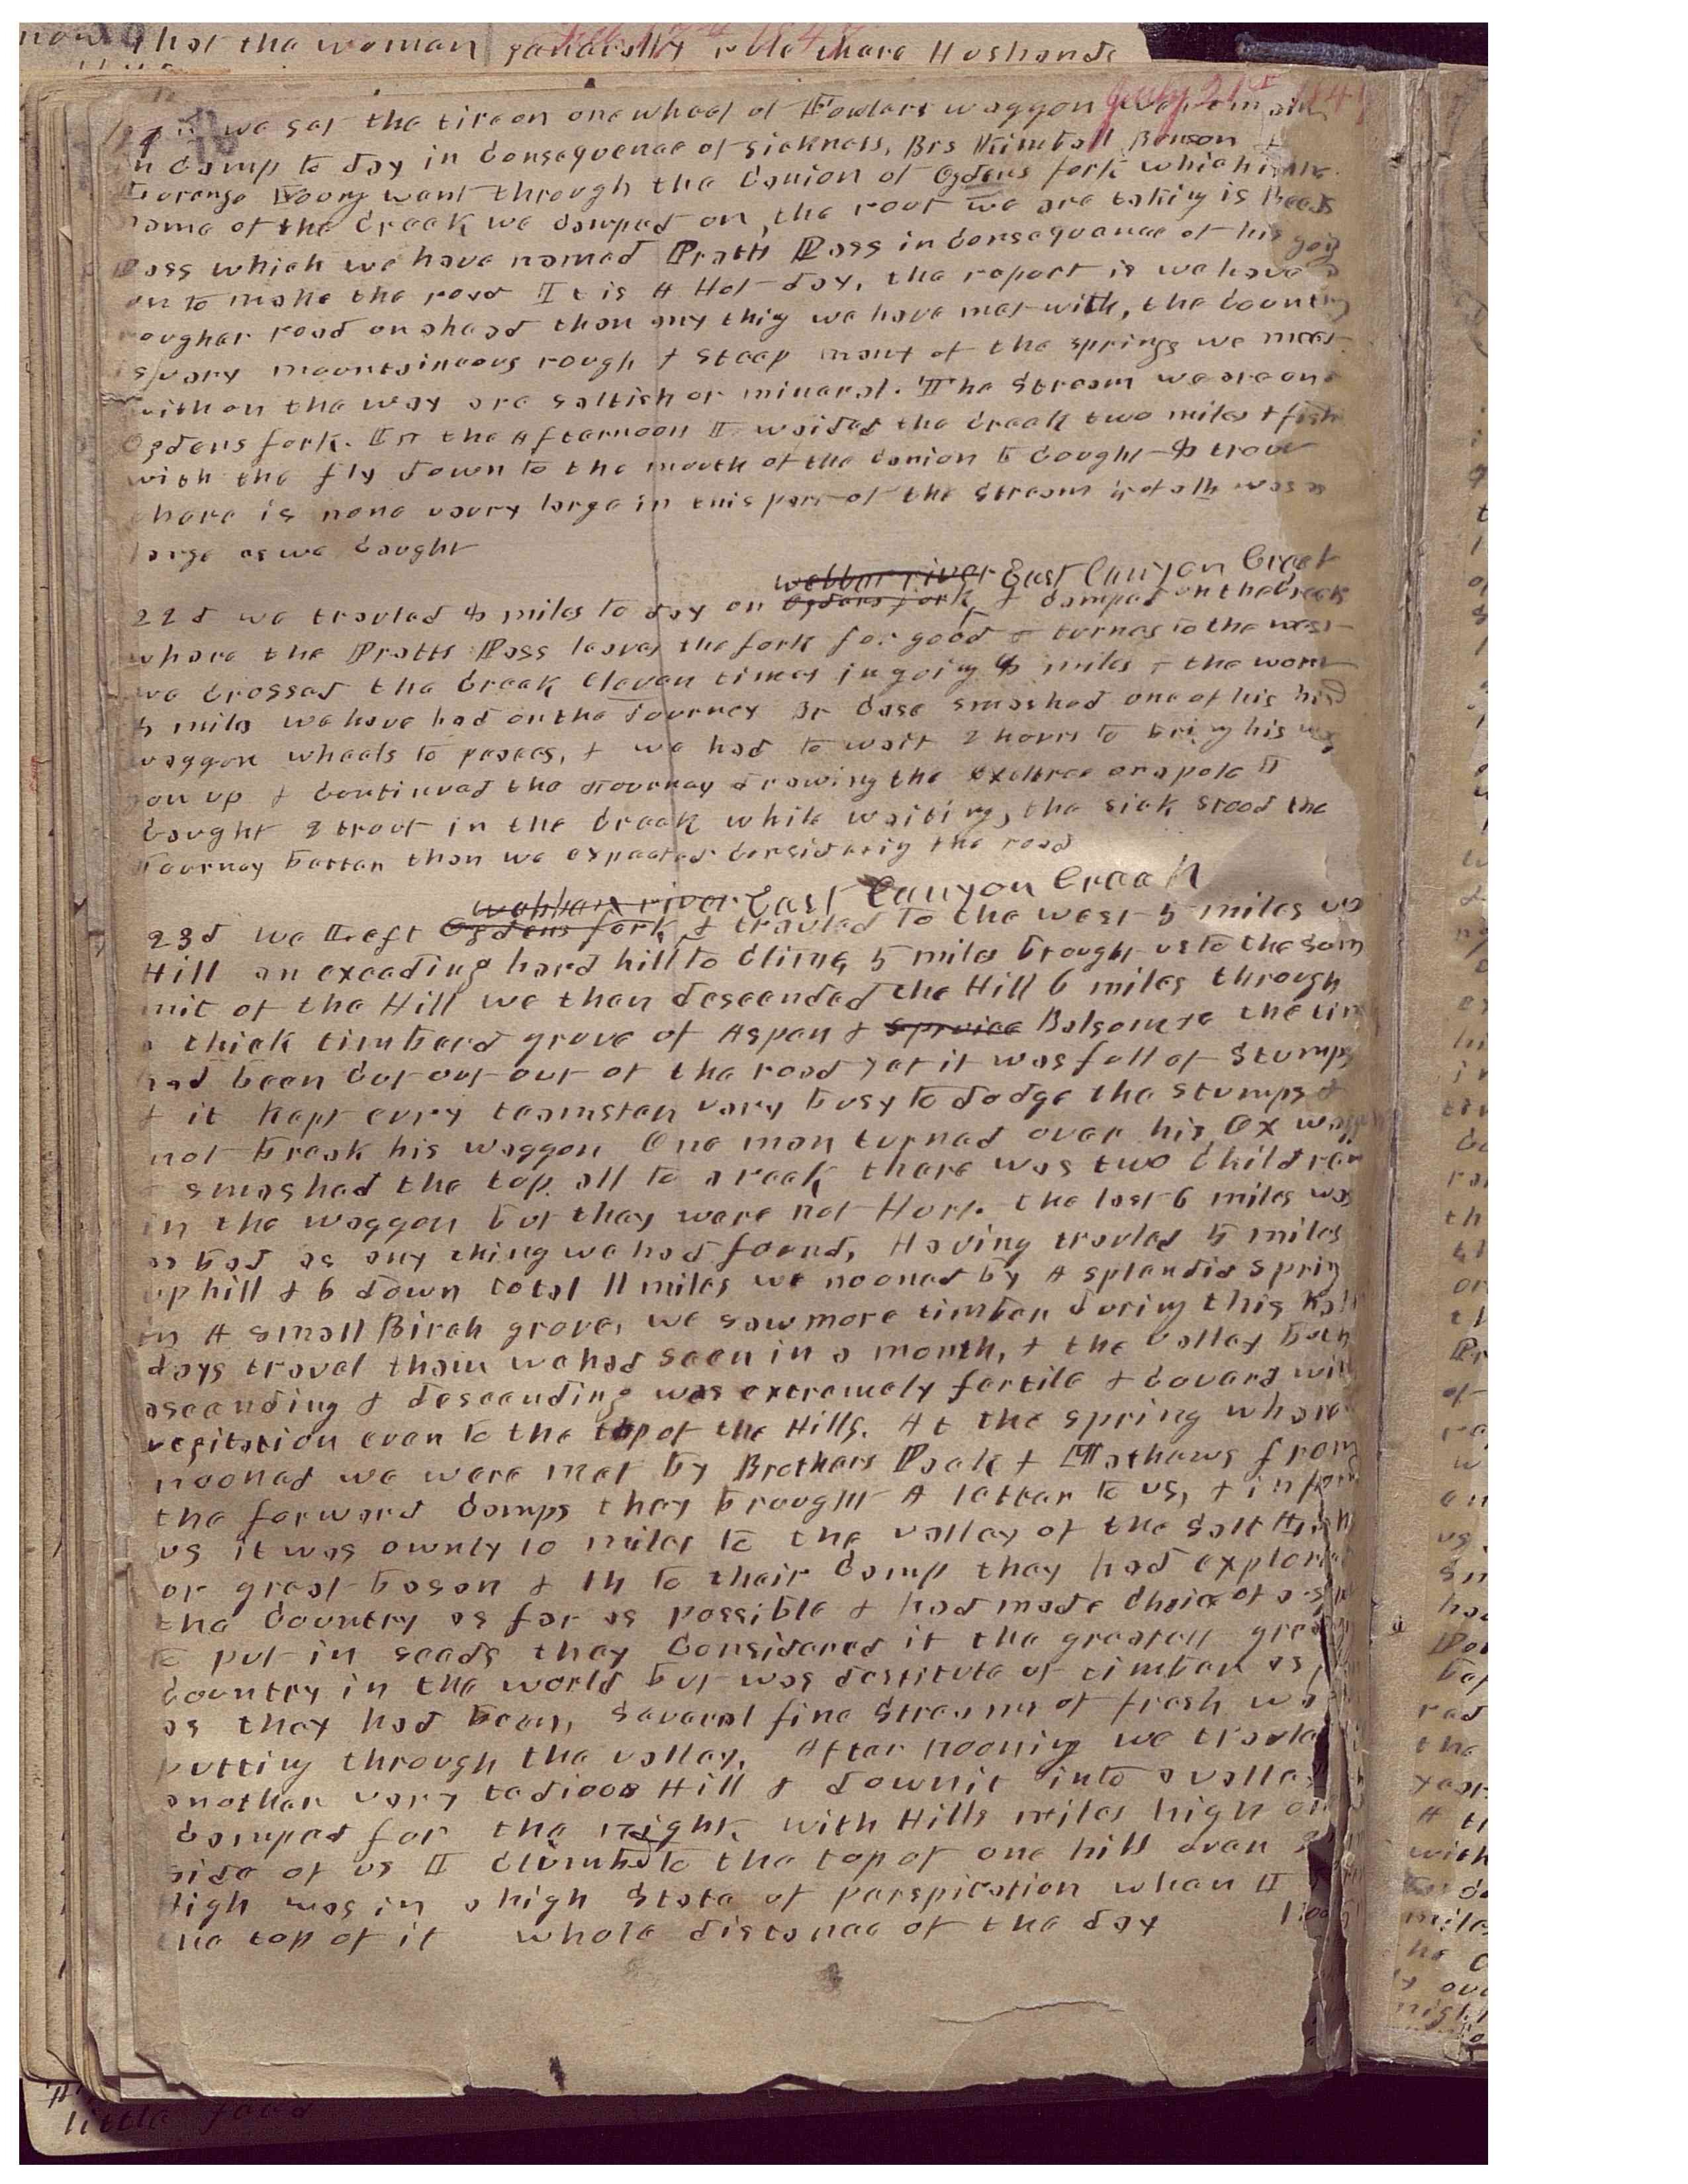 now that the woman generally rule thare Husbands
July 21st 184
we set the tire on one wheel of Fowlers waggon we remain
in Camp to day in Consequence of sickness, Brs Kimball Benson &
Lorenzo Young want through the Canion of Ogdens fork which is the
name of the Creek we Camped on, the rout we are taking is Reeds
Pass which we have named Pratts Pass in Consequence of his going
on to make the road It is A Hot day, the report is we have a
rougher road on ahead than any thig we have met with, the Country
is very mountaineous rough & steep most of the springs we meet
with on the way are saltish or mineral. The Stream we are on is
Ogdens fork. In the Afternoon I waided the Creek two miles & fish
with the fly down to the mouth of the Canion & Caught 8 trout
there is none veery large in this part of the Stream
large as we Caught
webber river East Canyon Creek
22d we travled 8 miles to day on Ogdens fork, & Camped on the Creek
whare the Pratts Pass leaves the fork for good & turnes to the west
we Crossed the Creek Eleven times in going 8 miles & the worst
8 miles we have had on the Journey Br Case smashed one of his hind
waggon wheels to peaces, & we had to wait 2 hours to bring his wag
gon up & Continued the Journey drawing the exeltree on a pole I
Caught 2 trout in the Creek while waiting, the sick stood the
Journey better than we expected Considering the road
webber river East Canyon Creek
23d we Left Ogdens fork, & travled to the west 5 miles up
Hill an exceding hard hill to Clime, 5 miles brought us to the som
mit of the Hill we then descended the Hill 6 miles through
a thick timberd grove of Aspen & spruice Balsom &c the tim
had been Cut out out of the road yet it was full of Stumps
& it kept evry teamster very busy to dodge the stumps &
not break his waggon One man turned over his Ox waggon
& smashed the top all to a reck there was two Children
in the waggon but they were not Hurt. the last 6 miles was
as bad as any thing we had found, Having travled 5 miles
up hill & 6 down total 11 miles we nooned by A splendid spring
in A small Birch grove, we saw more timber during this half
days travel than we had seen in a month, & the valley both
ascending & descending was extremely fertile & Coverd with
vegitation even to the top of the Hills. At the spring whare
nooned we were met by Brothers Pack & Mathews from
the forward Camps they brought A letter to us, & inform
us it was ownly 10 miles to the valley of the Salt
or great bason & 14 to their Camp they had explored
the Country as far as possible & had made Choice of a
to put in seeds they Considered it the greatest
Country in the world but was destitute of timber as
as they had been, Several fine Streams of fresh
putting through the valley. After nooning we travled
another very tedioos Hill & down it into a valley
Camped for the night with Hills miles high on
side of us I Climbed to the top of one hill
High was in a high State of perspiration when I
the top of it whole distance of the day
little food